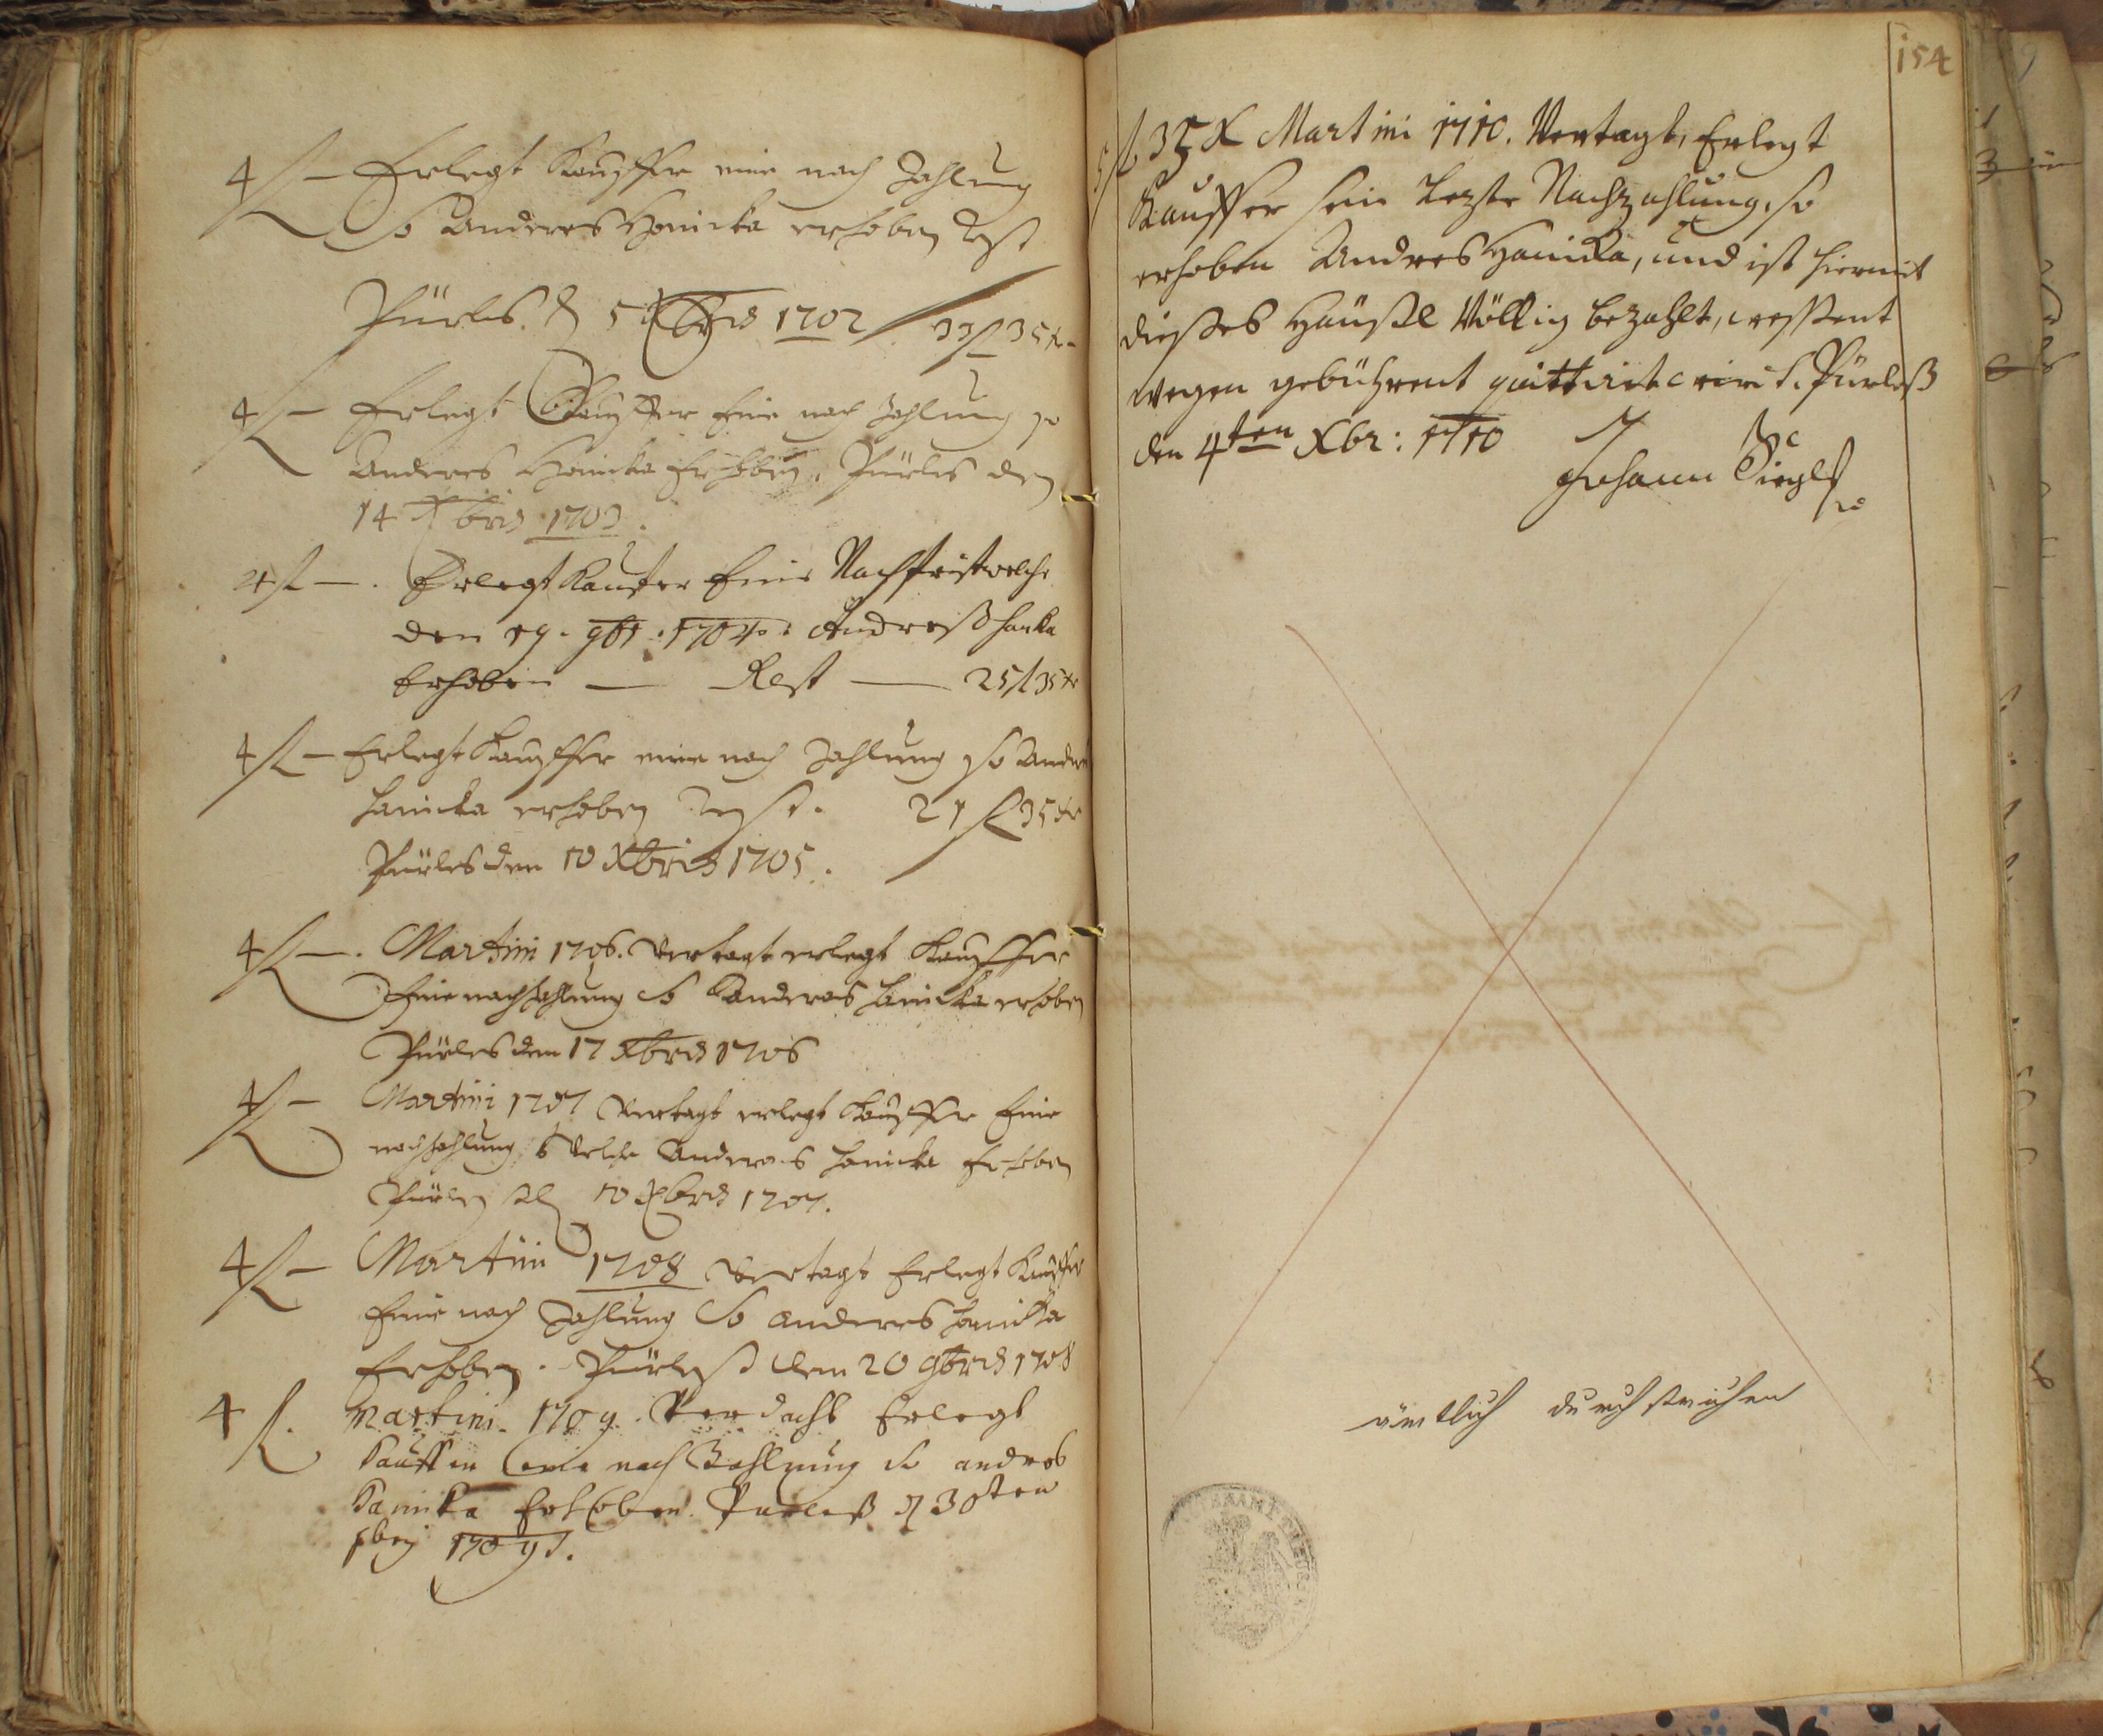 4 fl — Erlegt Kauffer eine nach Zahlung
So Anderes Hanicka erhoben Rest
Pürles d 5 Xbris 1702 33 fl 35 kr
4 fl — Erlegt Kauffer Eine nach Zahlung so
Anderes Hanicka Erhoben. Pürles den
14 Xbris 1703.
4 fl —. Erlegt Kauffer Eine Nachfrist welche
den 19. 9br: 1704: Andreß hanka
Erhoben — Rest — 25 fl 35 kr
4 fl — Erlegt Kauffer eine nach Zahlung so Anderes
Hanicka erhoben Rest. 21 fl 35 kr
Pürles den 10 Xbris 1705.
4 fl —. Martini 1706. Vertagt erlegt Kauffer
Eine nachzahlung So Anderas Hanicka erhoben
Pürles dem 17 Xbris 1706
4 fl — Martini 1707 Vertagt erlegt Kauffer Eine
nachzahlung Welche Anderas Hanicka Erhoben
Pürles 10 Xbris 1707.
4 fl — Martini 1708 Vertagt Erlegt Kauffer
Eine nach Zahlung So anderes Hanicka
Erhoben. Pürleß dem 20 9bris 1708
4 fl. Martini. 1709. Verdacht Erlegt
Kauffer eine nach Zahlung So andres
Hanicka Erhoben. Purleß d 30sten
1709.
154
5 fl 35 X Martini 1710. Vertagt, Erlegt
Kauffer sein Lezte Nachzahlung, so
erhoben Andres Hanicka, und ist hiermit
dießes Häußl Völlig bezahlt, weßent
wegen gebührent quittirt wird. Pürleß
den 4ten Xbr: 1710
Johann Siegl
ämtlich durchstrichen